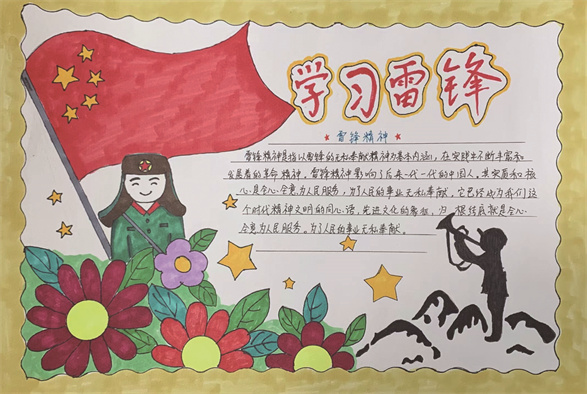 学习雷锋
雷锋精神
雷锋精神是指以雷锋的无私奉献精神为基本内涵，在实践中不断丰富和
发展着的革命精神，雷锋精神影响了后来一代一代的中国人，其实质和核
心是全心全意为人民服务，为了人民的事业无私奉献，它已经成为我们这
个时代精神文明的同心语，先进文化的，归根结底就是全心
全意为人民服务，为了人民的事业无私奉献。